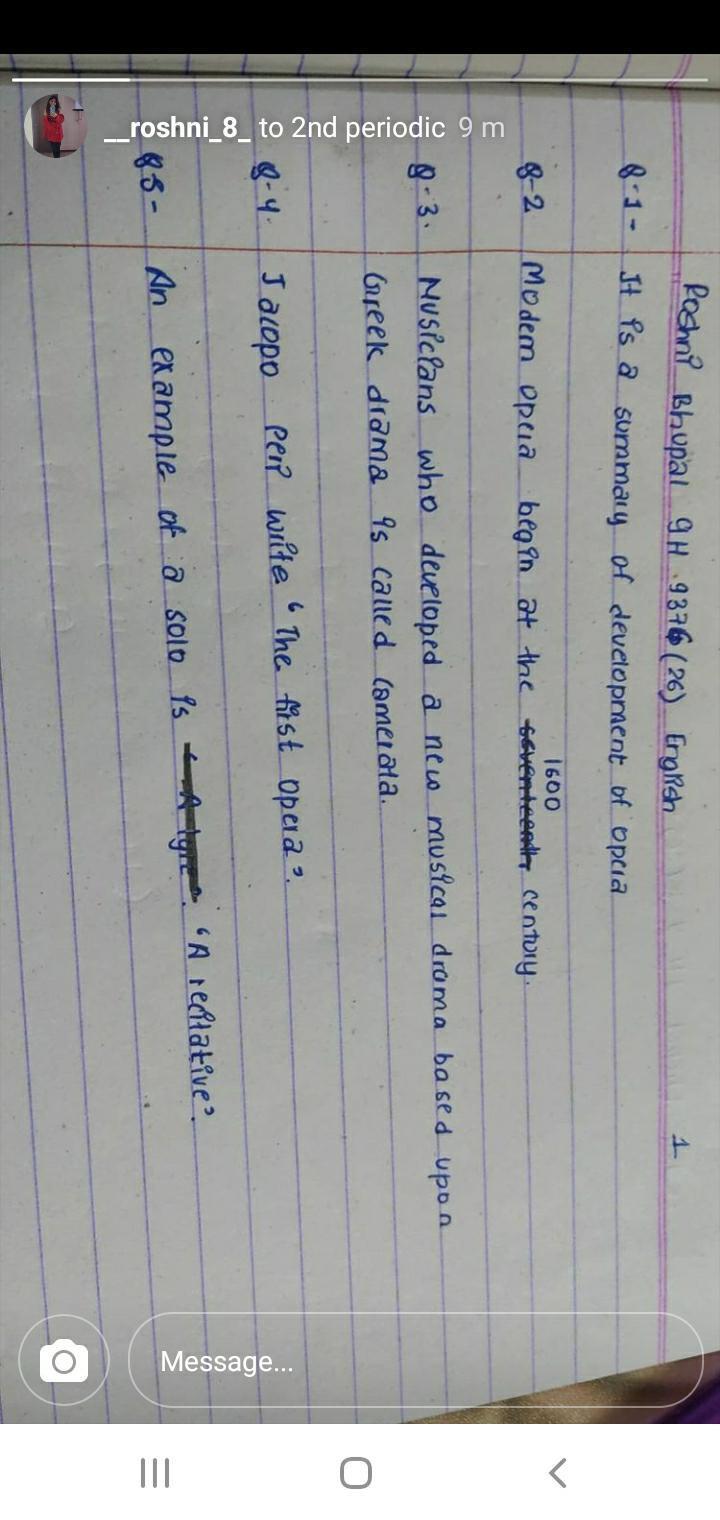 __roshni_8_ to 2nd periodic 9 m
Roshni Bhupal 9H 9376 (26) English 1
Q.1- It is a summary of development of opera
Q-2 Modern opera begin at the seventeenth 1600 century.
Q.3. Musicians who developed a new musical drama based upon
Greek drama is called camerata.
Q.4. Jacopo peri write "The first opera".
Q5- An example of a solo is "A lyric". "A recitative".
Message...